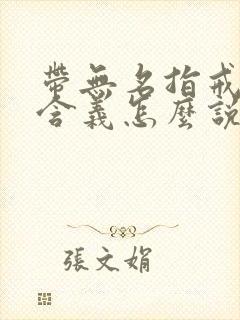 帶無名指戒
含義怎麼說
張文娟